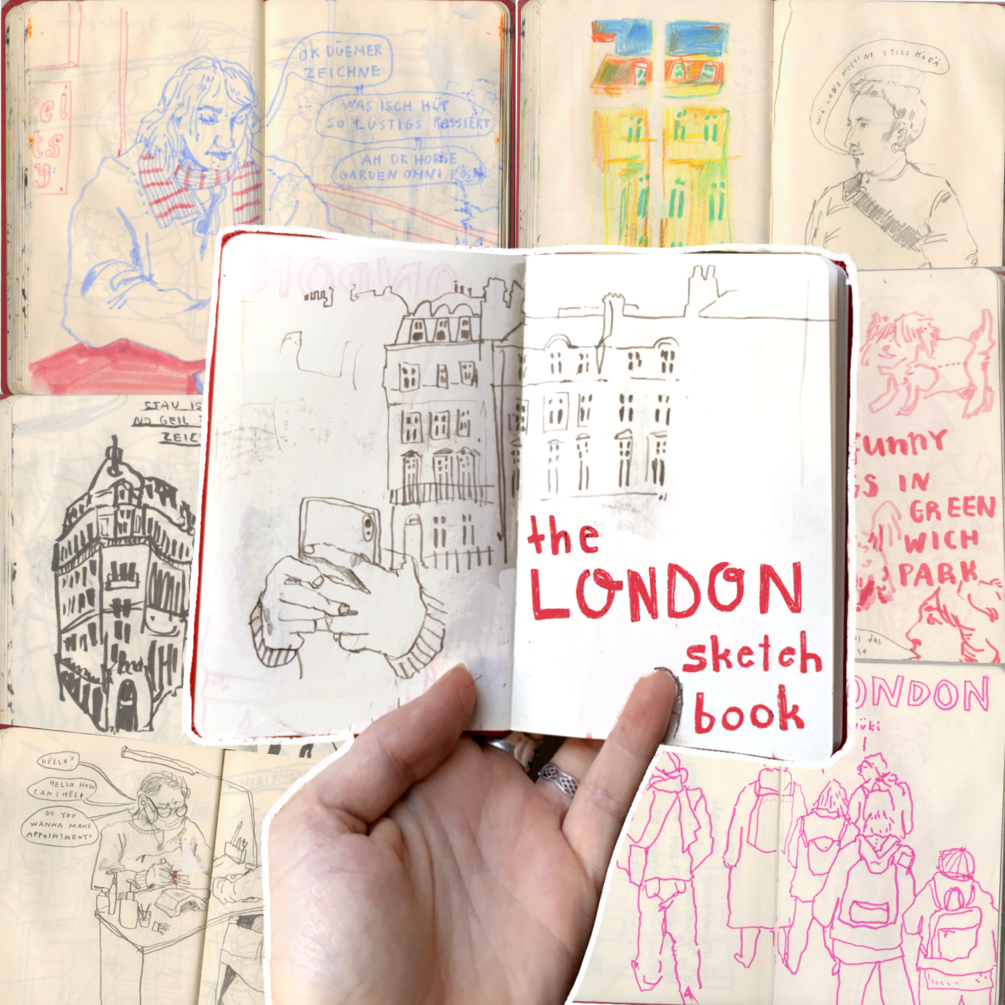 OK DÜEMER
ZEICHNE
WAS ISCH HÜT
SO LUSTIGS PASSIERT
AM DR HORSE
GARDEN OHNI
STILL HÄBÄ
NO GEIL
the
LONDON
sketch
book
IN
GREEN
WICH
PARK
das
LONDON
HELLO?
HELLO HOW
CAN I HELP
DO YOU
WANNA MAKE
APPOINTMENT?